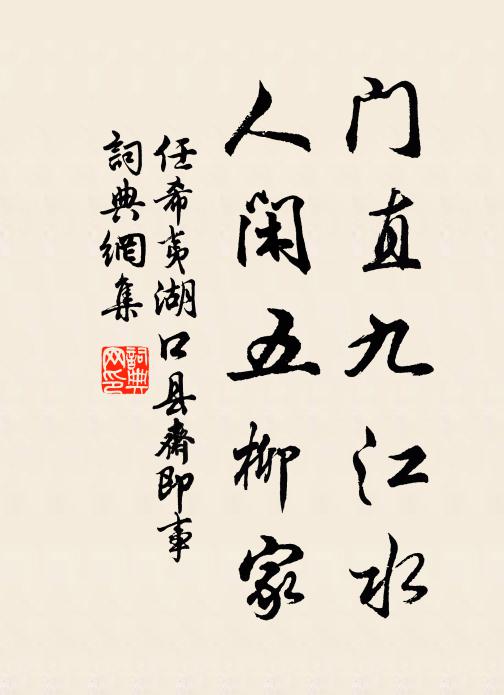 门直九江水
人闲五柳家
任希夷湖口县斋即事
詞典網集
詞典网印